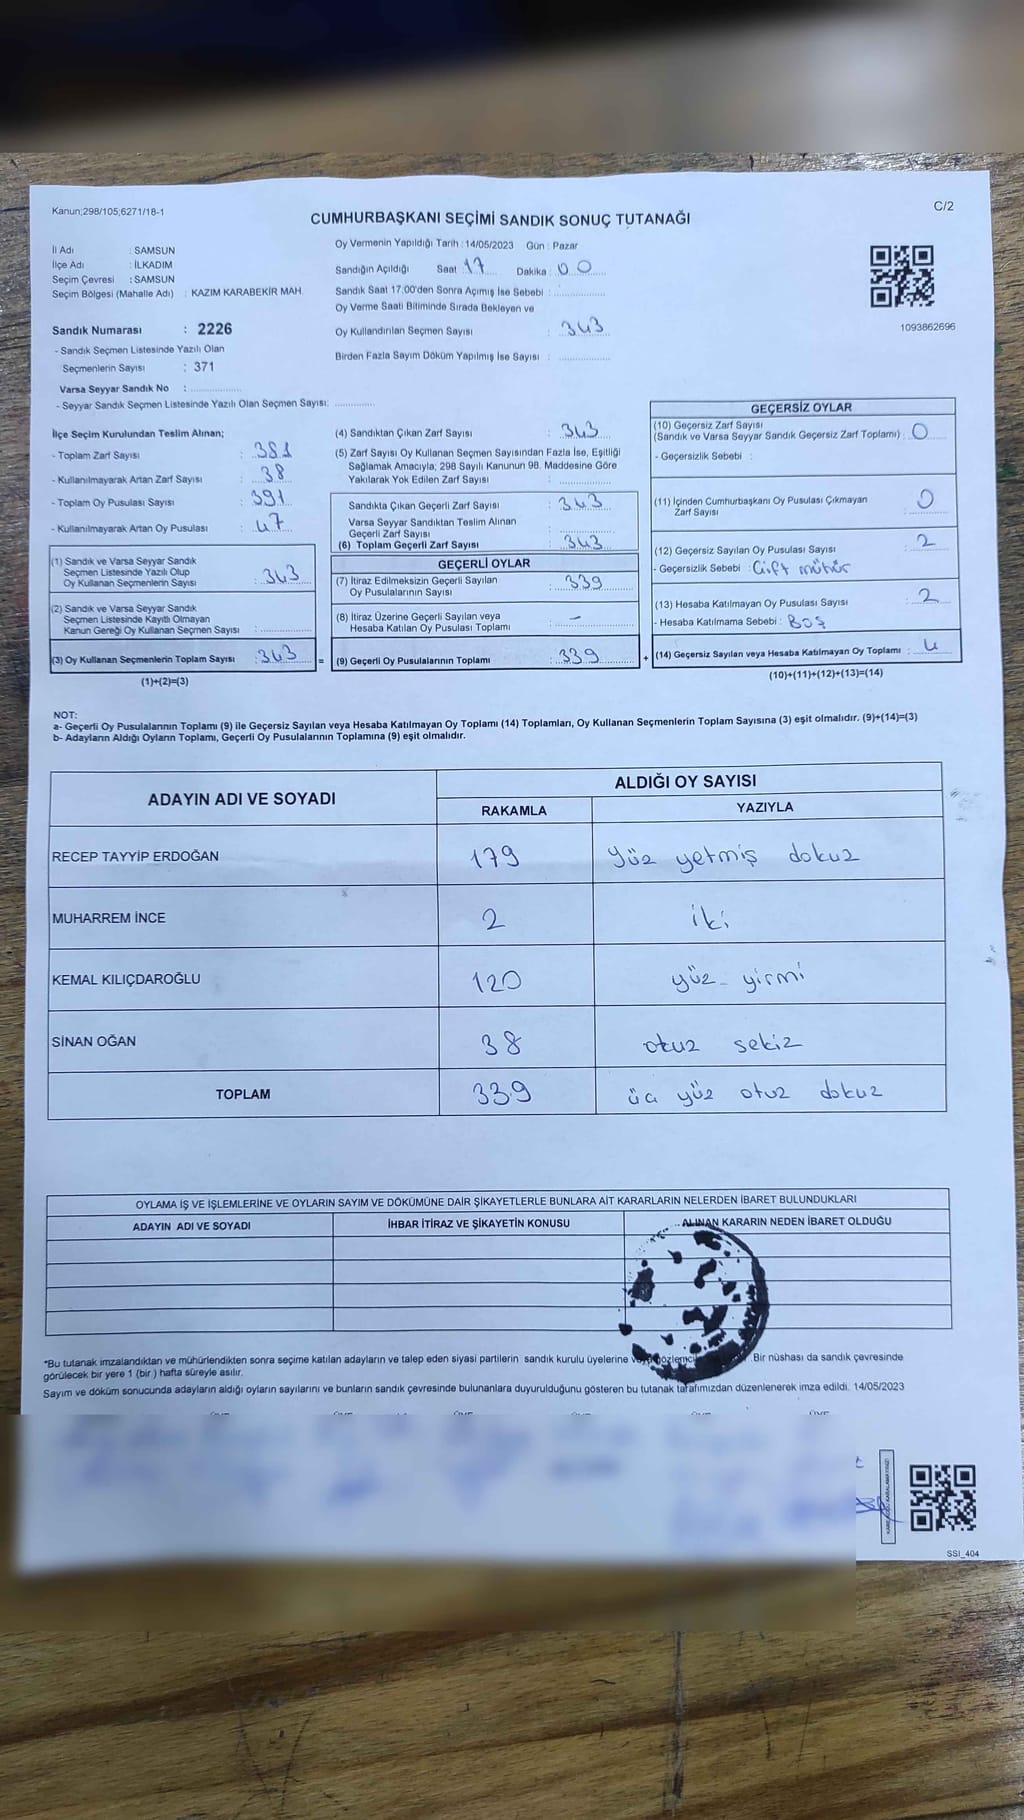 Kanun;298/105;6271/18-1
C/2
CUMHURBAŞKANI SEÇİMİ SANDIK SONUÇ TUTANAĞI
İl Adı : SAMSUN
İlçe Adı : İLKADIM
Seçim Çevresi : SAMSUN
Seçim Bölgesi (Mahalle Adı) : KAZIM KARABEKİR MAH.
Sandık Numarası : 2226
- Sandık Seçmen Listesinde Yazılı Olan
Seçmenlerin Sayısı : 371
Varsa Seyyar Sandık No : ..................
- Seyyar Sandık Seçmen Listesinde Yazılı Olan Seçmen Sayısı: ..............
Oy Vermenin Yapıldığı Tarih : 14/05/2023 Gün : Pazar
Sandığın Açıldığı Saat : 17 Dakika : 00
Sandık Saat 17:00'den Sonra Açımış İse Sebebi : ..................
Oy Verme Saati Bitiminde Sırada Bekleyen ve
Oy Kullandırılan Seçmen Sayısı : 343
Birden Fazla Sayım Döküm Yapılmış İse Sayısı : ..................
1093862696
İlçe Seçim Kurulundan Teslim Alınan;
- Toplam Zarf Sayısı : 381
- Kullanılmayarak Artan Zarf Sayısı : 38
- Toplam Oy Pusulası Sayısı : 391
- Kullanılmayarak Artan Oy Pusulası : 47
(1) Sandık ve Varsa Seyyar Sandık
Seçmen Listesinde Yazılı Olup
Oy Kullanan Seçmenlerin Sayısı : 343
(2) Sandık ve Varsa Seyyar Sandık
Seçmen Listesinde Kayıtlı Olmayan
Kanun Gereği Oy Kullanan Seçmen Sayısı : ..............
(3) Oy Kullanan Seçmenlerin Toplam Sayısı : 343
(1)+(2)=(3)
(4) Sandıktan Çıkan Zarf Sayısı : 343
(5) Zarf Sayısı Oy Kullanan Seçmen Sayısından Fazla İse, Eşitliği
Sağlamak Amacıyla; 298 Sayılı Kanunun 98. Maddesine Göre
Yakılarak Yok Edilen Zarf Sayısı : ..............
Sandıkta Çıkan Geçerli Zarf Sayısı : 343
Varsa Seyyar Sandıktan Teslim Alınan
Geçerli Zarf Sayısı : ..............
(6) Toplam Geçerli Zarf Sayısı : 343
GEÇERLİ OYLAR
(7) İtiraz Edilmeksizin Geçerli Sayılan
Oy Pusulalarının Sayısı : 339
(8) İtiraz Üzerine Geçerli Sayılan veya
Hesaba Katılan Oy Pusulası Toplamı : –
(9) Geçerli Oy Pusulalarının Toplamı : 339
GEÇERSİZ OYLAR
(10) Geçersiz Zarf Sayısı
(Sandık ve Varsa Seyyar Sandık Geçersiz Zarf Toplamı) : 0
- Geçersizlik Sebebi :
(11) İçinden Cumhurbaşkanı Oy Pusulası Çıkmayan
Zarf Sayısı : 0
(12) Geçersiz Sayılan Oy Pusulası Sayısı : 2
- Geçersizlik Sebebi : Çift mühür
(13) Hesaba Katılmayan Oy Pusulası Sayısı : 2
- Hesaba Katılmama Sebebi : BOŞ
(14) Geçersiz Sayılan veya Hesaba Katılmayan Oy Toplamı : 4
(10)+(11)+(12)+(13)=(14)
NOT:
a- Geçerli Oy Pusulalarının Toplamı (9) ile Geçersiz Sayılan veya Hesaba Katılmayan Oy Toplamı (14) Toplamları, Oy Kullanan Seçmenlerin Toplam Sayısına (3) eşit olmalıdır. (9)+(14)=(3)
b- Adayların Aldığı Oyların Toplamı, Geçerli Oy Pusulalarının Toplamına (9) eşit olmalıdır.
ADAYIN ADI VE SOYADI ALDIĞI OY SAYISI
RAKAMLA YAZIYLA
RECEP TAYYİP ERDOĞAN 179 yüz yetmiş dokuz
MUHARREM İNCE 2 iki
KEMAL KILIÇDAROĞLU 120 yüz yirmi
SİNAN OĞAN 38 otuz sekiz
TOPLAM 339 üç yüz otuz dokuz
OYLAMA İŞ VE İŞLEMLERİNE VE OYLARIN SAYIM VE DÖKÜMÜNE DAİR ŞİKAYETLERLE BUNLARA AİT KARARLARIN NELERDEN İBARET BULUNDUKLARI
ADAYIN ADI VE SOYADI İHBAR İTİRAZ VE ŞİKAYETİN KONUSU ALINAN KARARIN NEDEN İBARET OLDUĞU
*Bu tutanak imzalandıktan ve mühürlendikten sonra seçime katılan adayların ve talep eden siyasi partilerin sandık kurulu üyelerine Bir nüshası da sandık çevresinde
görülecek bir yere 1 (bir ) hafta süreyle asılır.
Sayım ve döküm sonucunda adayların aldığı oyların sayılarını ve bunların sandık çevresinde bulunanlara duyurulduğunu gösteren bu tutanak tarafımızdan düzenlenerek imza edildi. 14/05/2023
SSI_404